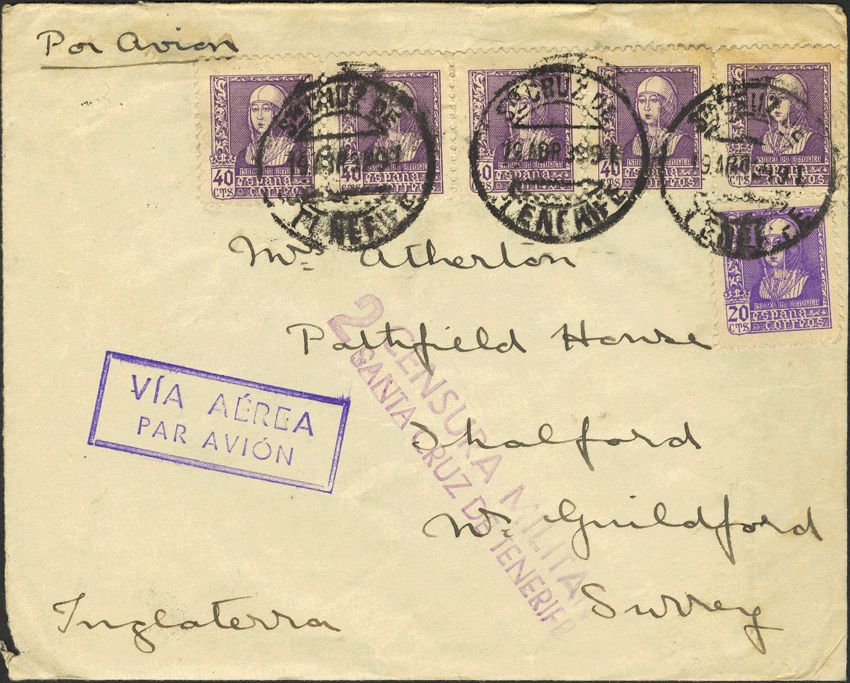 Por Avion
40 CTS ESPAÑA CORREOS
40 CTS ESPAÑA CORREOS
40 CTS
40 CTS ESPAÑA CORREOS
ESPAÑA CORREOS
20 CTS ESPAÑA CORREOS
STA CRUZ DE
TENERIFE
STA CRUZ DE
19 ABR
TENERIFE
CRUZ
19 ABR
Mrs Atherton
Pathfield House
Shalford
Nr Guildford
Surrey
Inglaterra
VÍA AÉREA
PAR AVIÓN
2 CENSURA MILITA
SANTA CRUZ DE TENERIFE